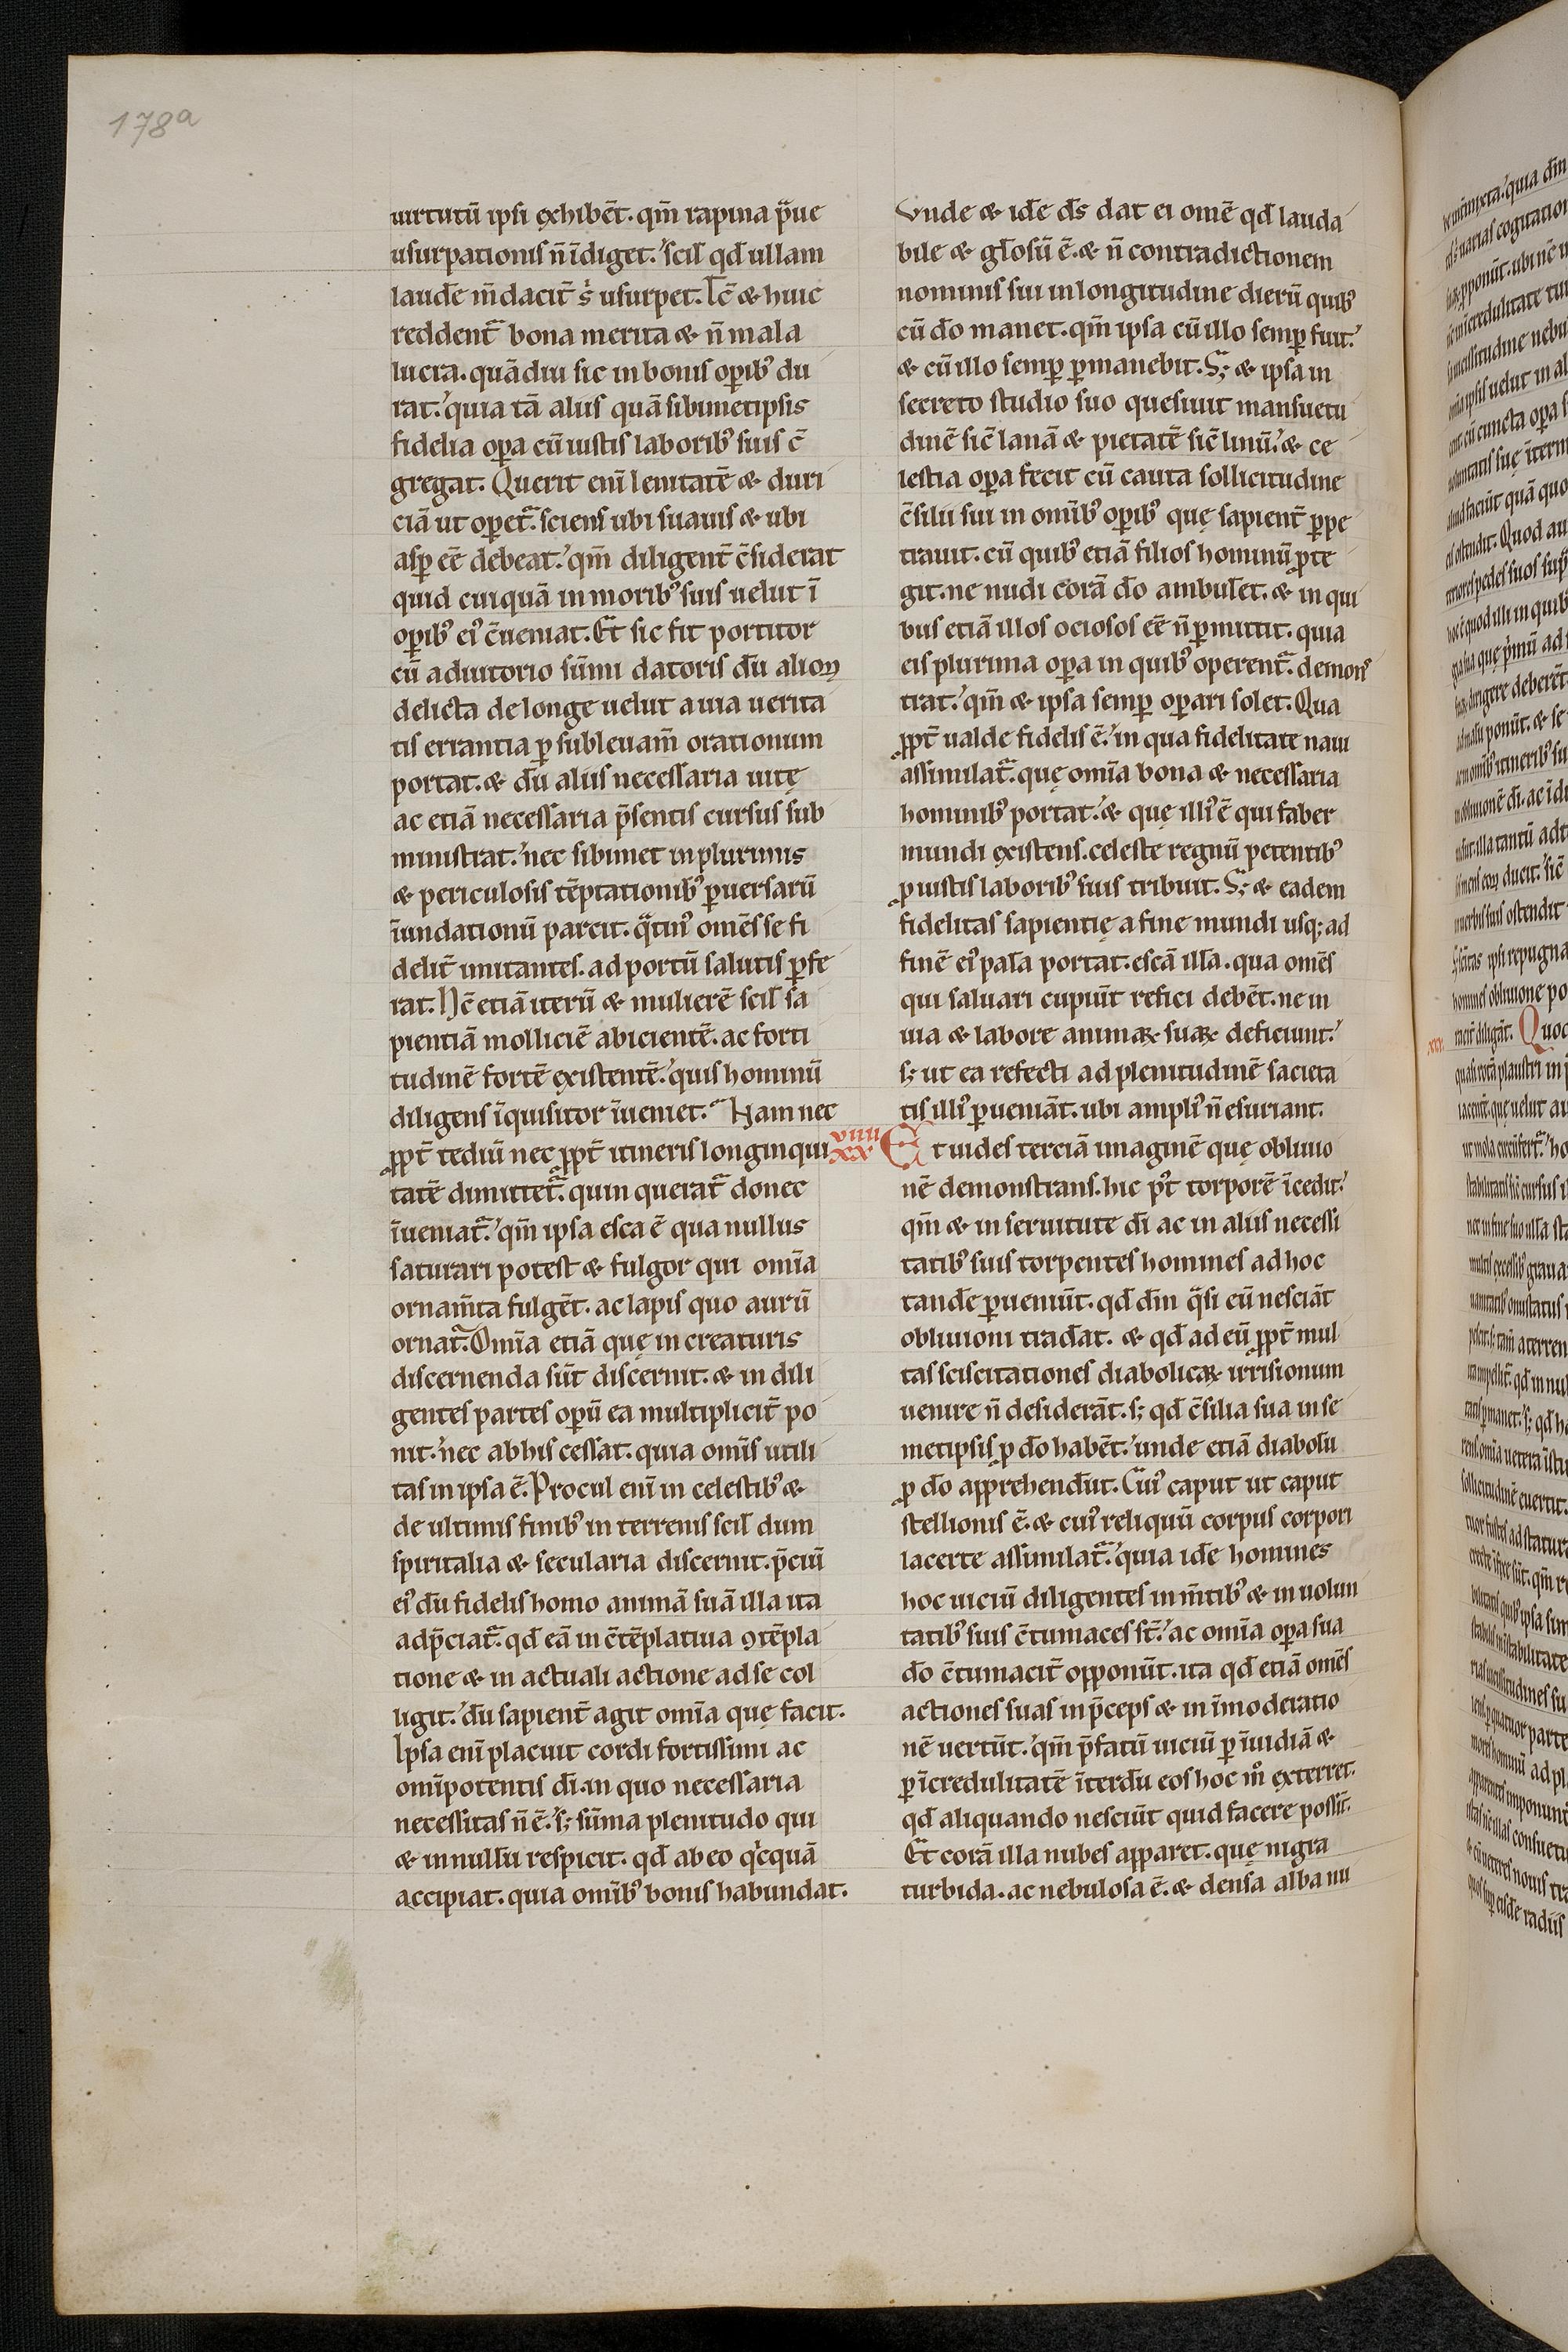 178a
uirtutū ipsi exhibēt. qm̄ rapina p̄ue
usurpationis n̄ īdiget.' scil̄ qd̄ ullam
laudē m̄daciť s' usurpet. Īc̄ & huic
reddent̄ bona merita & n̄ mala
lucra. quādiu sic in bonis opib' du
rat.' quia tā aliis quā sibimetipsis
fidelia opa cū iustis laborib' suis c̄
gregat. Querit eni lenitatē & duri
ciā ut opet̄. sciens ubi suauis & ubi
asp eē debeat.' qm̄ diligent̄ c̄siderat
quid cuiquā in morib' suis uelut ī
opib' ei' c̄ueniat. Et sic fit portitor
cū adiutorio sūmi datoris dū alioꝝ
delicta de longe uelut a uia uerita
tis errantia p subleuam̄ orationum
portat. & dū aliis necessaria uitę
ac etiā necessaria p̄sentis cursus sub
ministrat.' nec sibimet in plurimis
& periculosis tēptationib' puersarū
īundationū parcit. q̄tin' omēs se fi
delit̄ imitantes. ad portū salutis pfe
rat. Hc̄ etiā iterū & mulierē scil̄ sa
pientiā molliciē abicientē. ac forti
tudinē fortē existentē.' quis hominū
diligens īquisitor īueniet. Nam nec
ꝓpt̄ tediū nec ꝓpt̄ itineris longinqui
tatē dimittet̄. quin querat̄ donec
īueniat̄.' qm̄ ipsa esca ē qua nullus
saturari potest & fulgor qui omīa
ornam̄ta fulgēt. ac lapis quo aurū
ornat̄. Omīa etiā quę in creaturis
discernenda sūt discernit. & in dili
gentes partes opū ea multiplicit̄ po
nit.' nec ab his cessat. quia omīs utili
tas in ipsa ē. Procul enī in celestib' &
de ultimis finib' in terrenis scil̄ dum
spiritalia & secularia discernit. p̄ciū
ei' dū fidelis homo animā suā illa ita
adp̄ciat̄. qd̄ eā in c̄tēplatiua ꝯtēpla
tione & in actuali actione ad se col
ligit.' dū sapient̄ agit omīa quę facit.
Ipsa enī placuit cordi fortissimi ac
omīpotentis dī. in quo necessaria
necessitas n̄ ē.' s; sūma plenitudo qui
& in nullū respicit. qd̄ ab eo q̇cquā
accipiat. quia omīb' bonis habundat.
Vnde & idē ds̄ dat ei omē qd̄ lauda
bile & gl̄osū ē. & n̄ contradictionem
nominis sui in longitudine dierū quib'
cū dō manet. qm̄ ipsa cū illo semp fuit.'
& cū illo semp pmanebit. S; & ipsa in
secreto studio suo quesiuit mansuetu
dinē sic̄ lanā & pietatē sic̄ linū.' & ce
lestia opa fecit cū cauta sollicitudine
c̄silii sui in omīb' opib' quę sapient̄ ppe
trauit. cū quib' etiā filios hominū ꝓte
git. ne nudi corā dō ambulēt. & in qui
bus etiā illos ociosos eē n̄ pmittit. quia
eis plurima opa in quib' operent̄. demons
trat.' qm̄ & ipsa semp opari solet. Qua
ꝓpt̄ ualde fidelis ē.' in qua fidelitate naui
assimilat̄. quę omīa bona & necessaria
hominib' portat.' & quę illi' ē qui faber
mundi existens. celeste regnū petentib'
ꝓ iustis laborib' suis tribuit. S; & eadem
fidelitas sapientię a fine mundi usq; ad
finē ei' pal̄a portat. escā ill̄a. qua omēs
qui saluari cupiūt refici debēt. ne in
uia & labore animaꝝ suaꝝ deficiunt.'
s; ut ea refecti ad plenitudinē sacieta
tis illi' pueniāt. ubi ampli' n̄ esuriant.
uiiii
xx Et uides terciā imaginē quę obliuio
nē demonstrans. hic pt̄ torporē īcedit.'
qm̄ & in seruitute dī ac in aliis necessi
tatib' suis torpentes homines ad hoc
tandē pueniūt. qd̄ dm̄ q̄si eū nesciāt
obliuioni tradāt. & qd̄ ad eū ꝓpt̄ mul
tas sciscitationes diabolicaꝝ irrisionum
uenire n̄ desiderāt. s; qd̄ c̄silia sua in se
metipsis ꝓ dō habēt.' unde etiā diabolū
ꝓ dō apprehendūt. Cui' caput ut caput
stellionis ē. & cui' reliquū corpus corpori
lacerte assimilat̄.' quia idē homines
hoc uiciū diligentes in m̄tib' & in uolun
tatib' suis c̄tumaces st̄.' ac omīa opa sua
dō c̄tumacit̄ opponūt. ita qd̄ etiā omēs
actiones suas in p̄ceps & in īmoderatio
nē uertūt.' qm̄ p̄fatū uiciū p īuidiā &
p īcredulitatē īterdū eos hoc m̊ exterret.
qd̄ aliquando nesciūt quid facere possīt.
Et corā illa nubes apparet. quę nigra
turbida. ac nebulosa ē. & densa alba nu